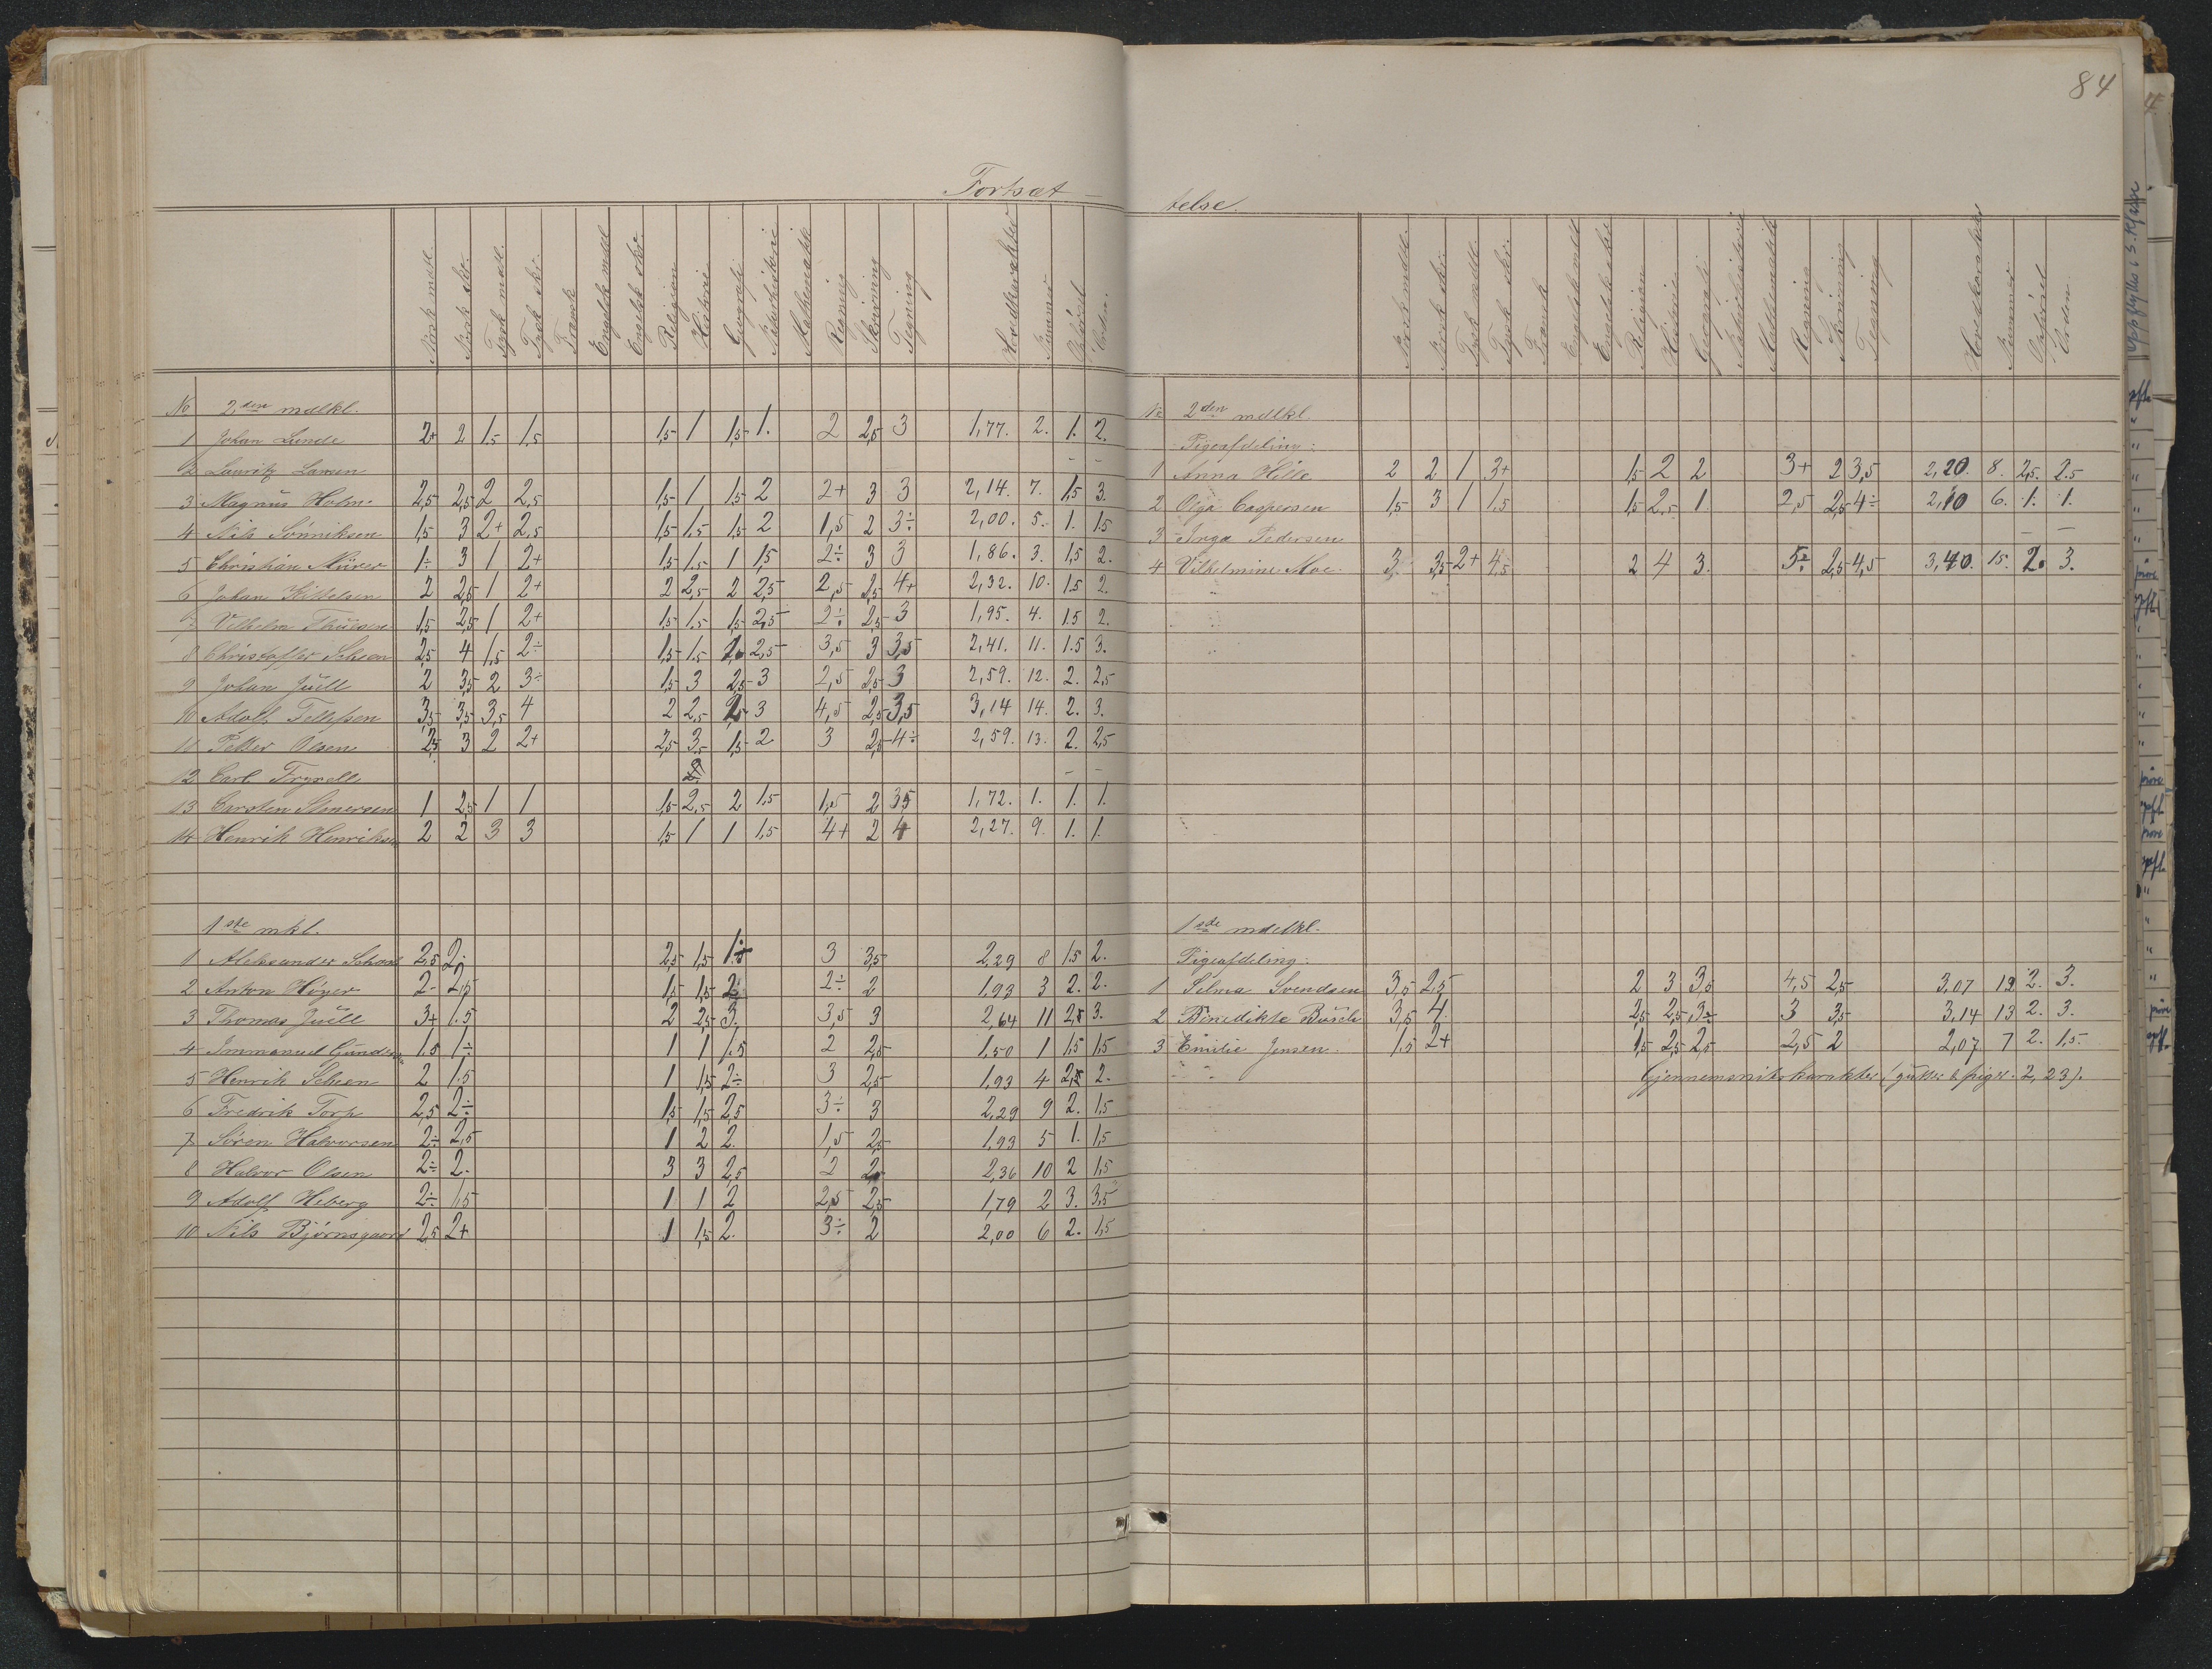 84
Fortsæt-
telse.
Norsk mdtl. Norsk skr. Tysk mdtl. Tysk skr. Fransk Engelsk mdtl Engelsk skr. Religion Historie Geografi Naturhistorie Mathematik Regning Skrivning Tegning Hovedkarakter Nummer Opførsel Orden.
No 2den mdlkl.
1 Johan Lunde 2+ 2 1,5 1,5 1,5 1 1,5 1. 2 2,5 3 1,77. 2. 1. 2.
2 Lauritz Larsen – –
3 Magnus Holm. 2,5 2,5 2 2,5 1,5 1 1,5 2 2+ 3 3 2,14. 7. 1,5 3.
4 Nils Sønniksen 1,5 3 2+ 2,5 1,5 1,5 1,5 2 1,5 2 3÷ 2,00. 5. 1. 1,5
5 Christian 1÷ 3 1 2+ 1,5 1,5 1 1,5 2÷ 3 3 1,86. 3. 1,5 2.
6 Johan Kittelsen 2 2,5 1 2+ 2 2,5 2 2,5 2,5 2,5 4+ 2,32. 10. 1,5 2.
7 Vilhelm 1,5 2,5 1 2+ 1,5 1,5 1,5 2,5 2÷ 2,5 3 1,95. 4. 1,5 2.
8 Christoffer Scheen 2,5 4 1,5 2÷ 1,5 1,5 2. 2,5 3,5 3 3,5 2,41. 11. 1.5 3.
9 Johan Juell 2 3,5 2 3÷ 1,5 3 2,5 3 2,5 2,5 3 2,59. 12. 2. 2,5
10 Adolf Tellefsen 3,5 3,5 3,5 4 2 2,5 2 3 4,5 2,5 3,5 3,14 14. 2. 3.
11 Petter Olsen 2,5 3 2 2+ 2,5 3,5 1,5 2 3 2,5 4÷ 2,59. 13. 2. 2,5
12 Carl Fryxell – –
13 Carsten 1 2,5 1 1 1,5 2,5 2 1,5 1,5 2 3,5 1,72. 1. 1. 1.
14 Henrik Henriksen 2 2 3 3 1,5 1 1 1,5 4+ 2 4 2,27. 9. 1. 1.
1ste mkl.
1 Aleksander 2,5 2÷ 2,5 1,5 3 3,5 2,29 8 1,5 2.
2 Anton Høyer 2- 2,5 1,5 1,5 2÷ 2÷ 2 1,93 3 2. 2.
3 Thomas Juell 3+ 1.5 2 2,5 3. 3,5 3 2,64 11 2,5 3.
4 Immanuel 1.5 1÷ 1 1 1.5 2 2,5 1,50 1 1,5 1,5
5 Henrik Scheen 2 1.5 1 1,5 2÷ 3 2,5 1,93 4 2,5 2.
6 Fredrik Torp 2,5 2÷ 1,5 1,5 2,5 3÷ 3 2,29 9 2. 1,5
7 Søren Halvorsen 2÷ 2,5 1 2 2. 1,5 2,5 1,93 5 1. 1,5
8 Halvor Olsen 2÷ 2. 3 3 2,5 2 2 2,36 10 2 1,5
9 Adolf Heberg 2÷ 1,5 1 1 2 2,5 2,5 1,79 2 3. 3,5
10 Nils Bjørnsgaard 2,5 2+ 1 1,5 2. 3÷ 2 2,00 6 2. 1,5
Norsk mdtl. Norsk skr. Tysk mdtl. Tysk skr. Fransk Engelsk mdtl Engelsk skr. Religion Historie Geografi Naturhistorie Mathematik Regning Skrivning Tegning Hovedkarakter Nummer Opførsel Orden
No 2den mdlkl.
Pigeafdeling:
1 Anna Hille 2 2 1 3+ 1,5 2 2 3+ 2 3,5 2,20. 8. 2,5. 2.5
2 Olga Caspersen 1,5 3 1 1,5 1,5 2,5 1 2,5 2,5 4÷ 2,10 6. 1. 1.
3 Inga Pedersen –
4 Vilhelmine Moe. 3. 3,5 2+ 4,5 2 4 3. 5÷ 2,5 4,5 3,40. 15. 2. 3.
1ste mdlkl.
Pigeafdeling:
1 Selma Svendsen 3,5 2,5 2 3 3,5 4,5 2,5 3,07 12 2. 3.
2 Benedikte Busch 3,5 4. 2,5 2,5 3÷ 3 3,5 3,14 13 2. 3.
3 Emilie Jensen. 1.5 2+ 1,5 2,5 2,5 2,5 2 2,07. 7 2. 1,5.
Gjennemsnitskarakter (gutter & piger: 2,23).